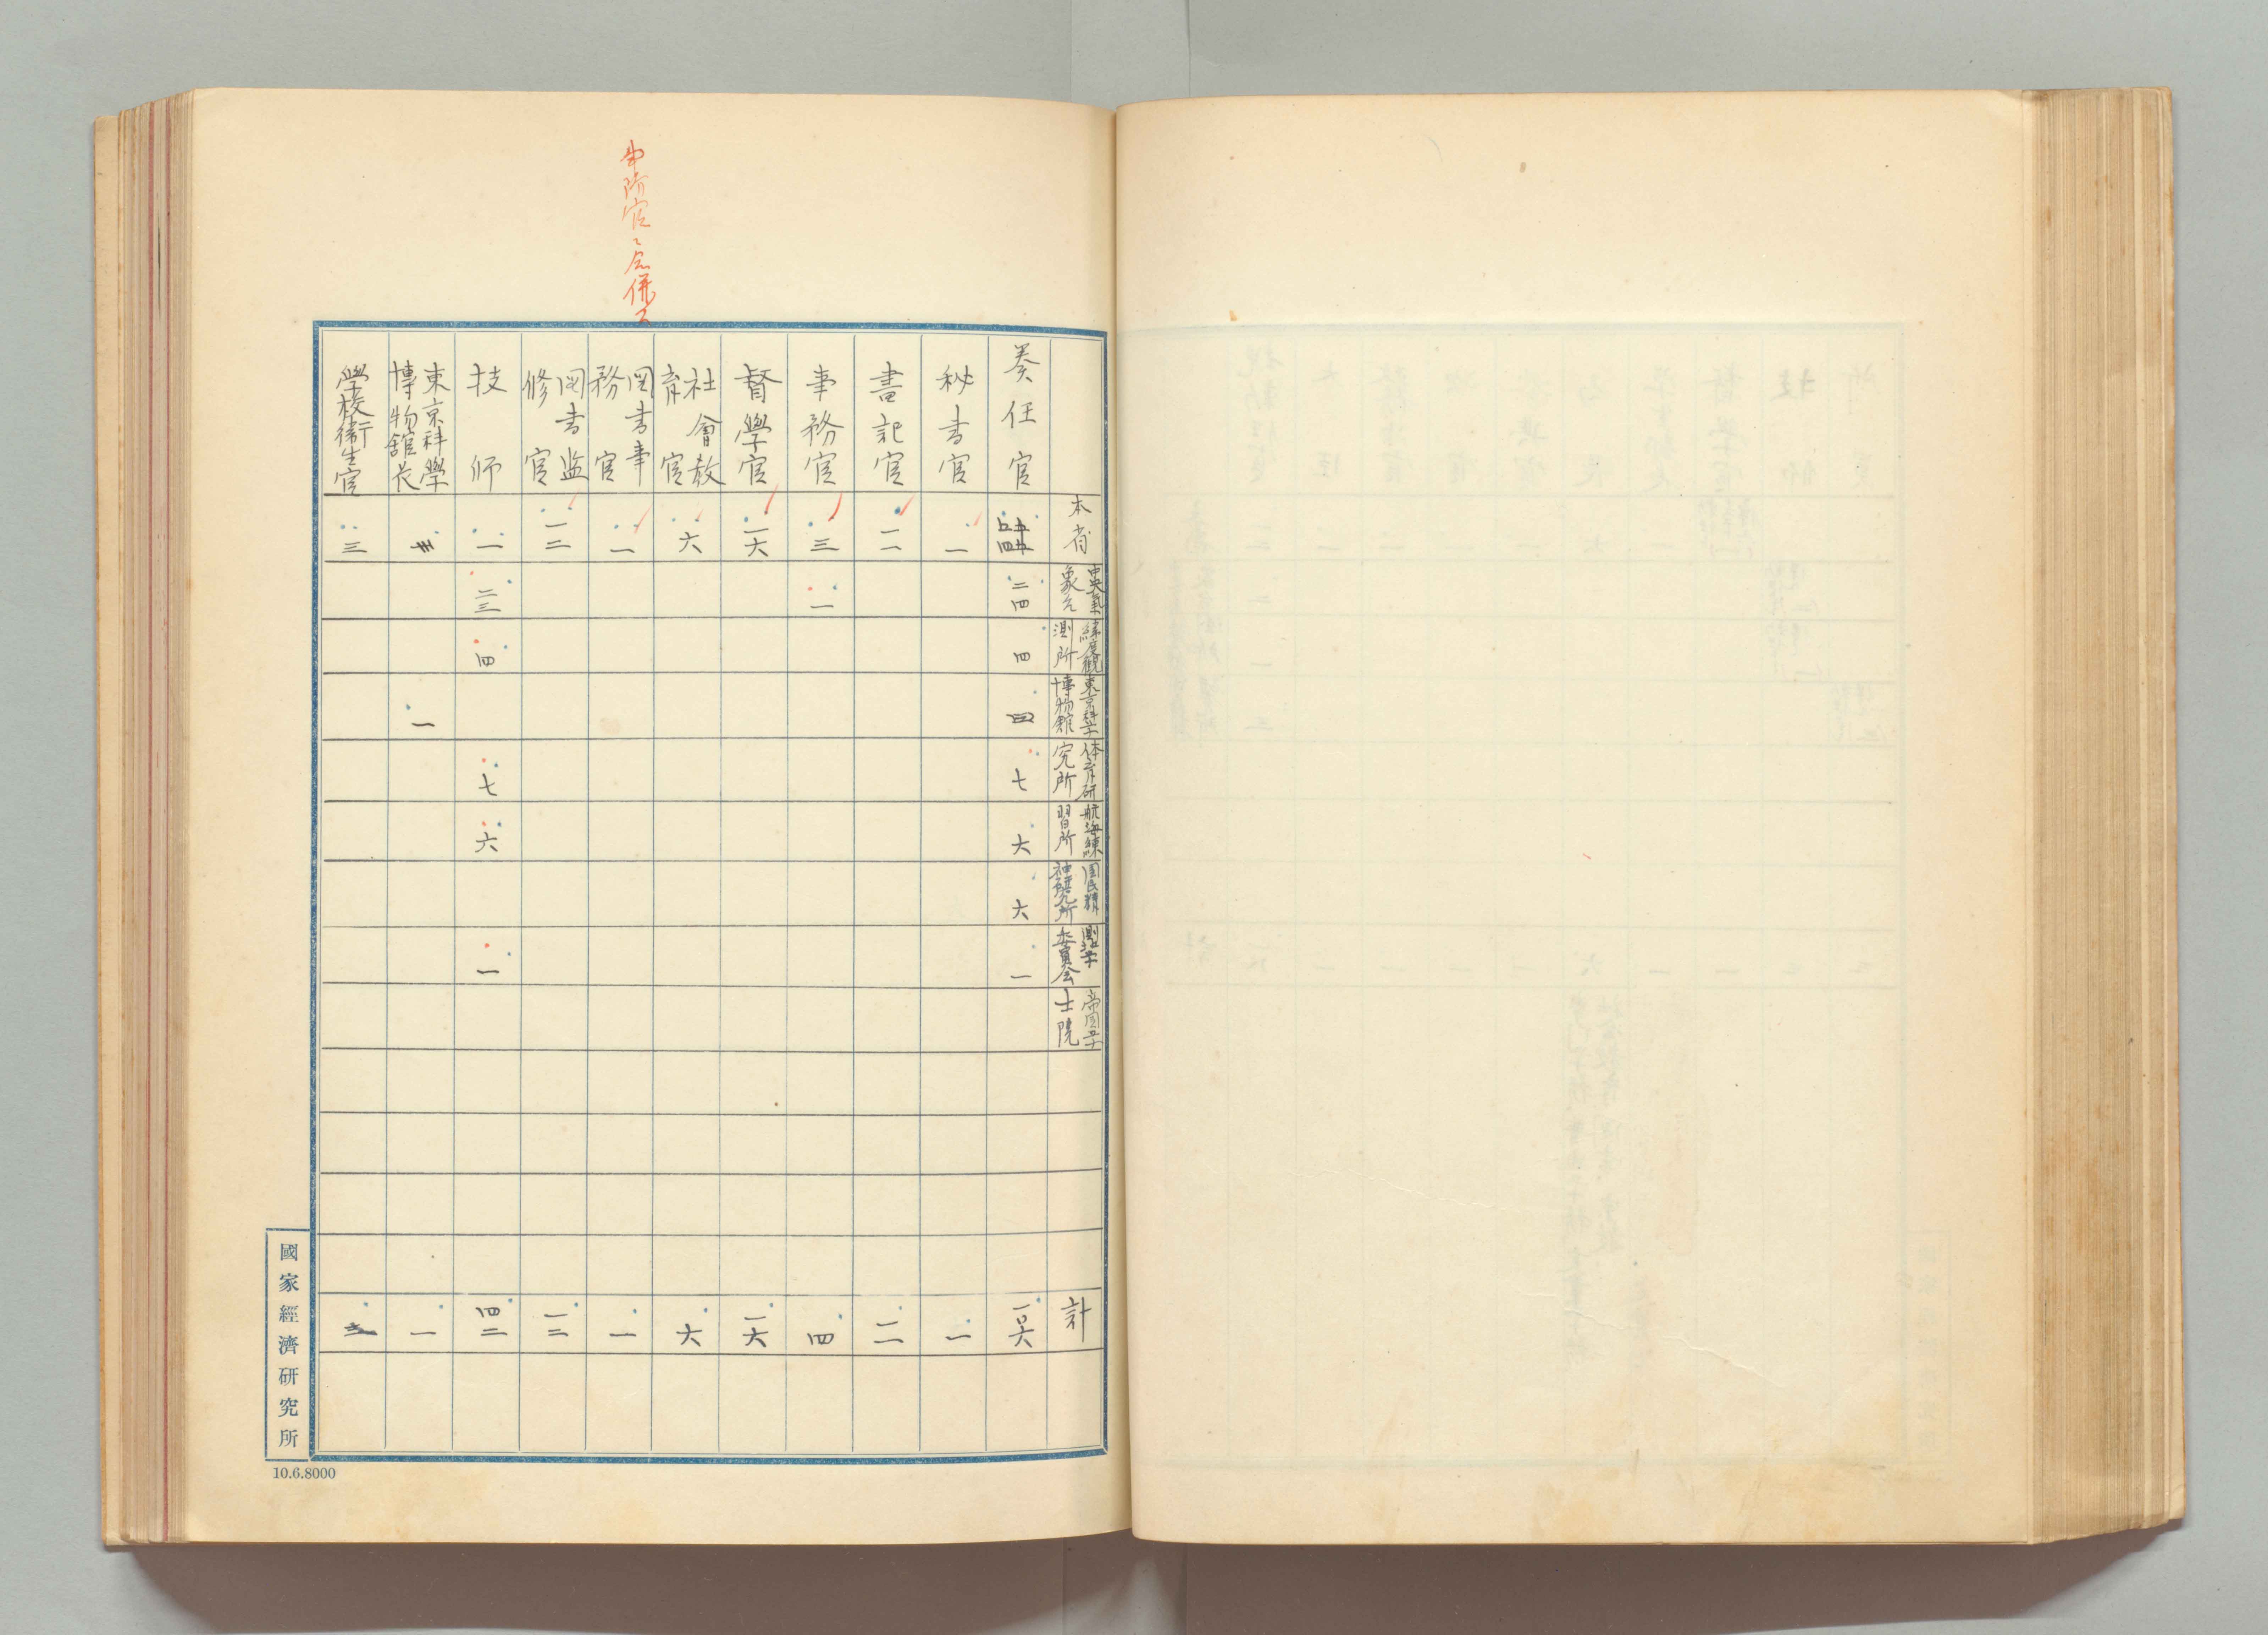 本省
中央氣象台
緯度観測所
東京科学博物館
体育研究所
航海練習所
国民精神研究所
測地学委員会
帝国学士院
計
奏任官
二四
四
四
七
六
六
一
一〇六
秘書官
一
一
書記官
一一
一一
事務官
三
一
四
督學官
一六
一六
社會教育官
六
六
図書事務官
一
一
図書监修官
一二
一二
技師
一
二三
四
七
六
一
四二
東京科學博物館長
一
一
學校衛生官
三
合併
國家經濟研究所
10.6.8000